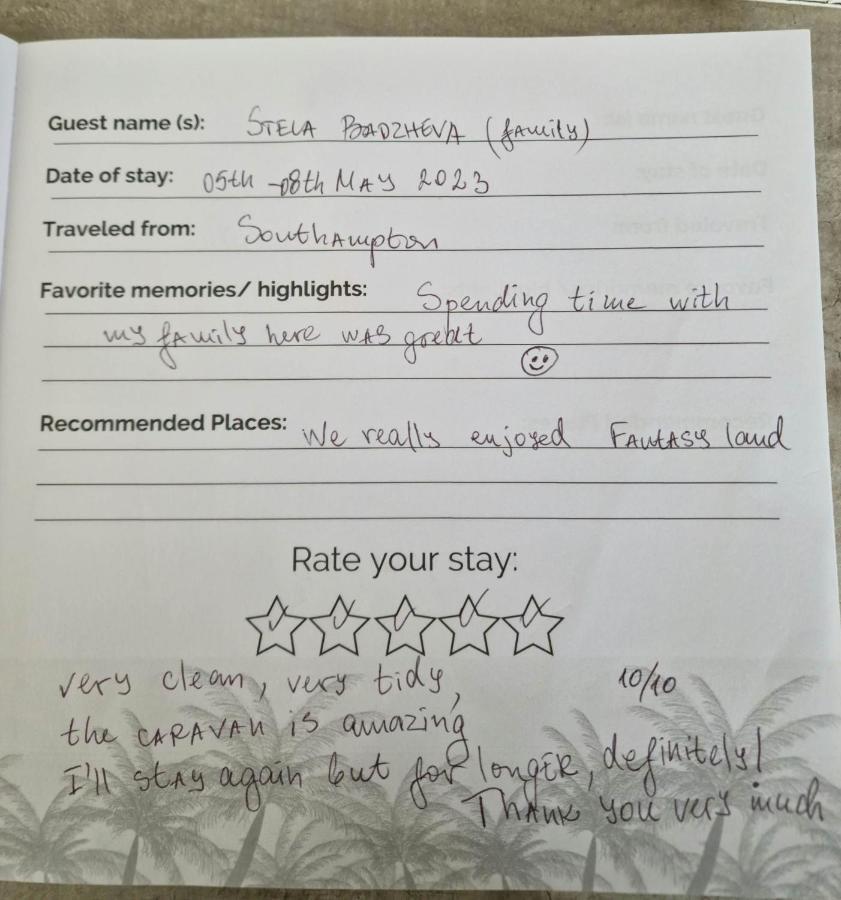 Guest name (s): STELA BADZHEVA (family)
Date of stay: 05th - 08th MAY 2023
Traveled from: Southampton
Favorite memories/ highlights: Spending time with
my family here was great
Recommended Places: We really enjoyed FANTASY land
Rate your stay:
very clean, very tidy, 10/10
the CARAVAN is amazing
I'll stay again but for longer, definitely!
Thank you very much